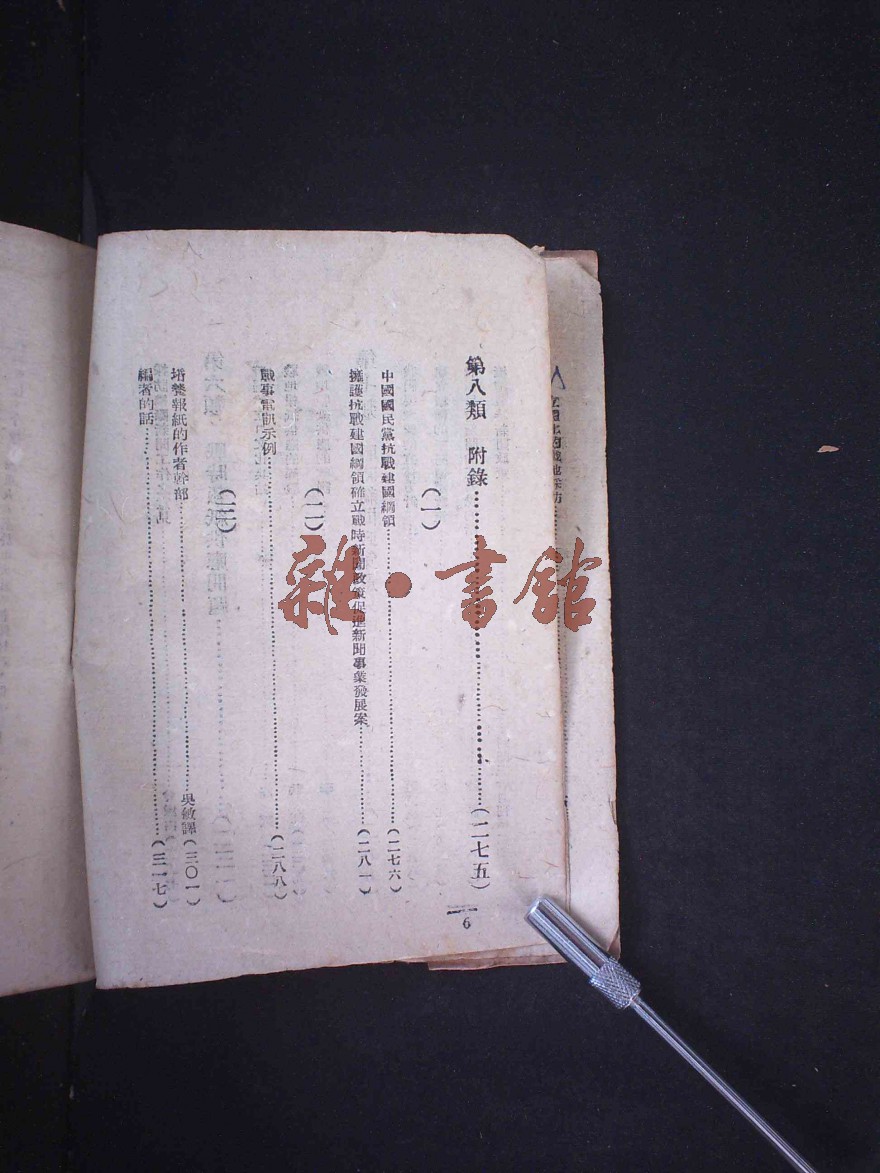 第八類 附錄……(二七五)
(一)
中國國民黨抗戰建國綱領……(二七六)
擁護抗戰建國綱領確立戰時新聞政策促進新聞事業發展案……(二八一)
(二)
戰事電訊示例……(二八八)
(三)
培養報紙的作者幹部……吳敏譯(三〇一)
編著的話……(三一七)
6
雜·書館